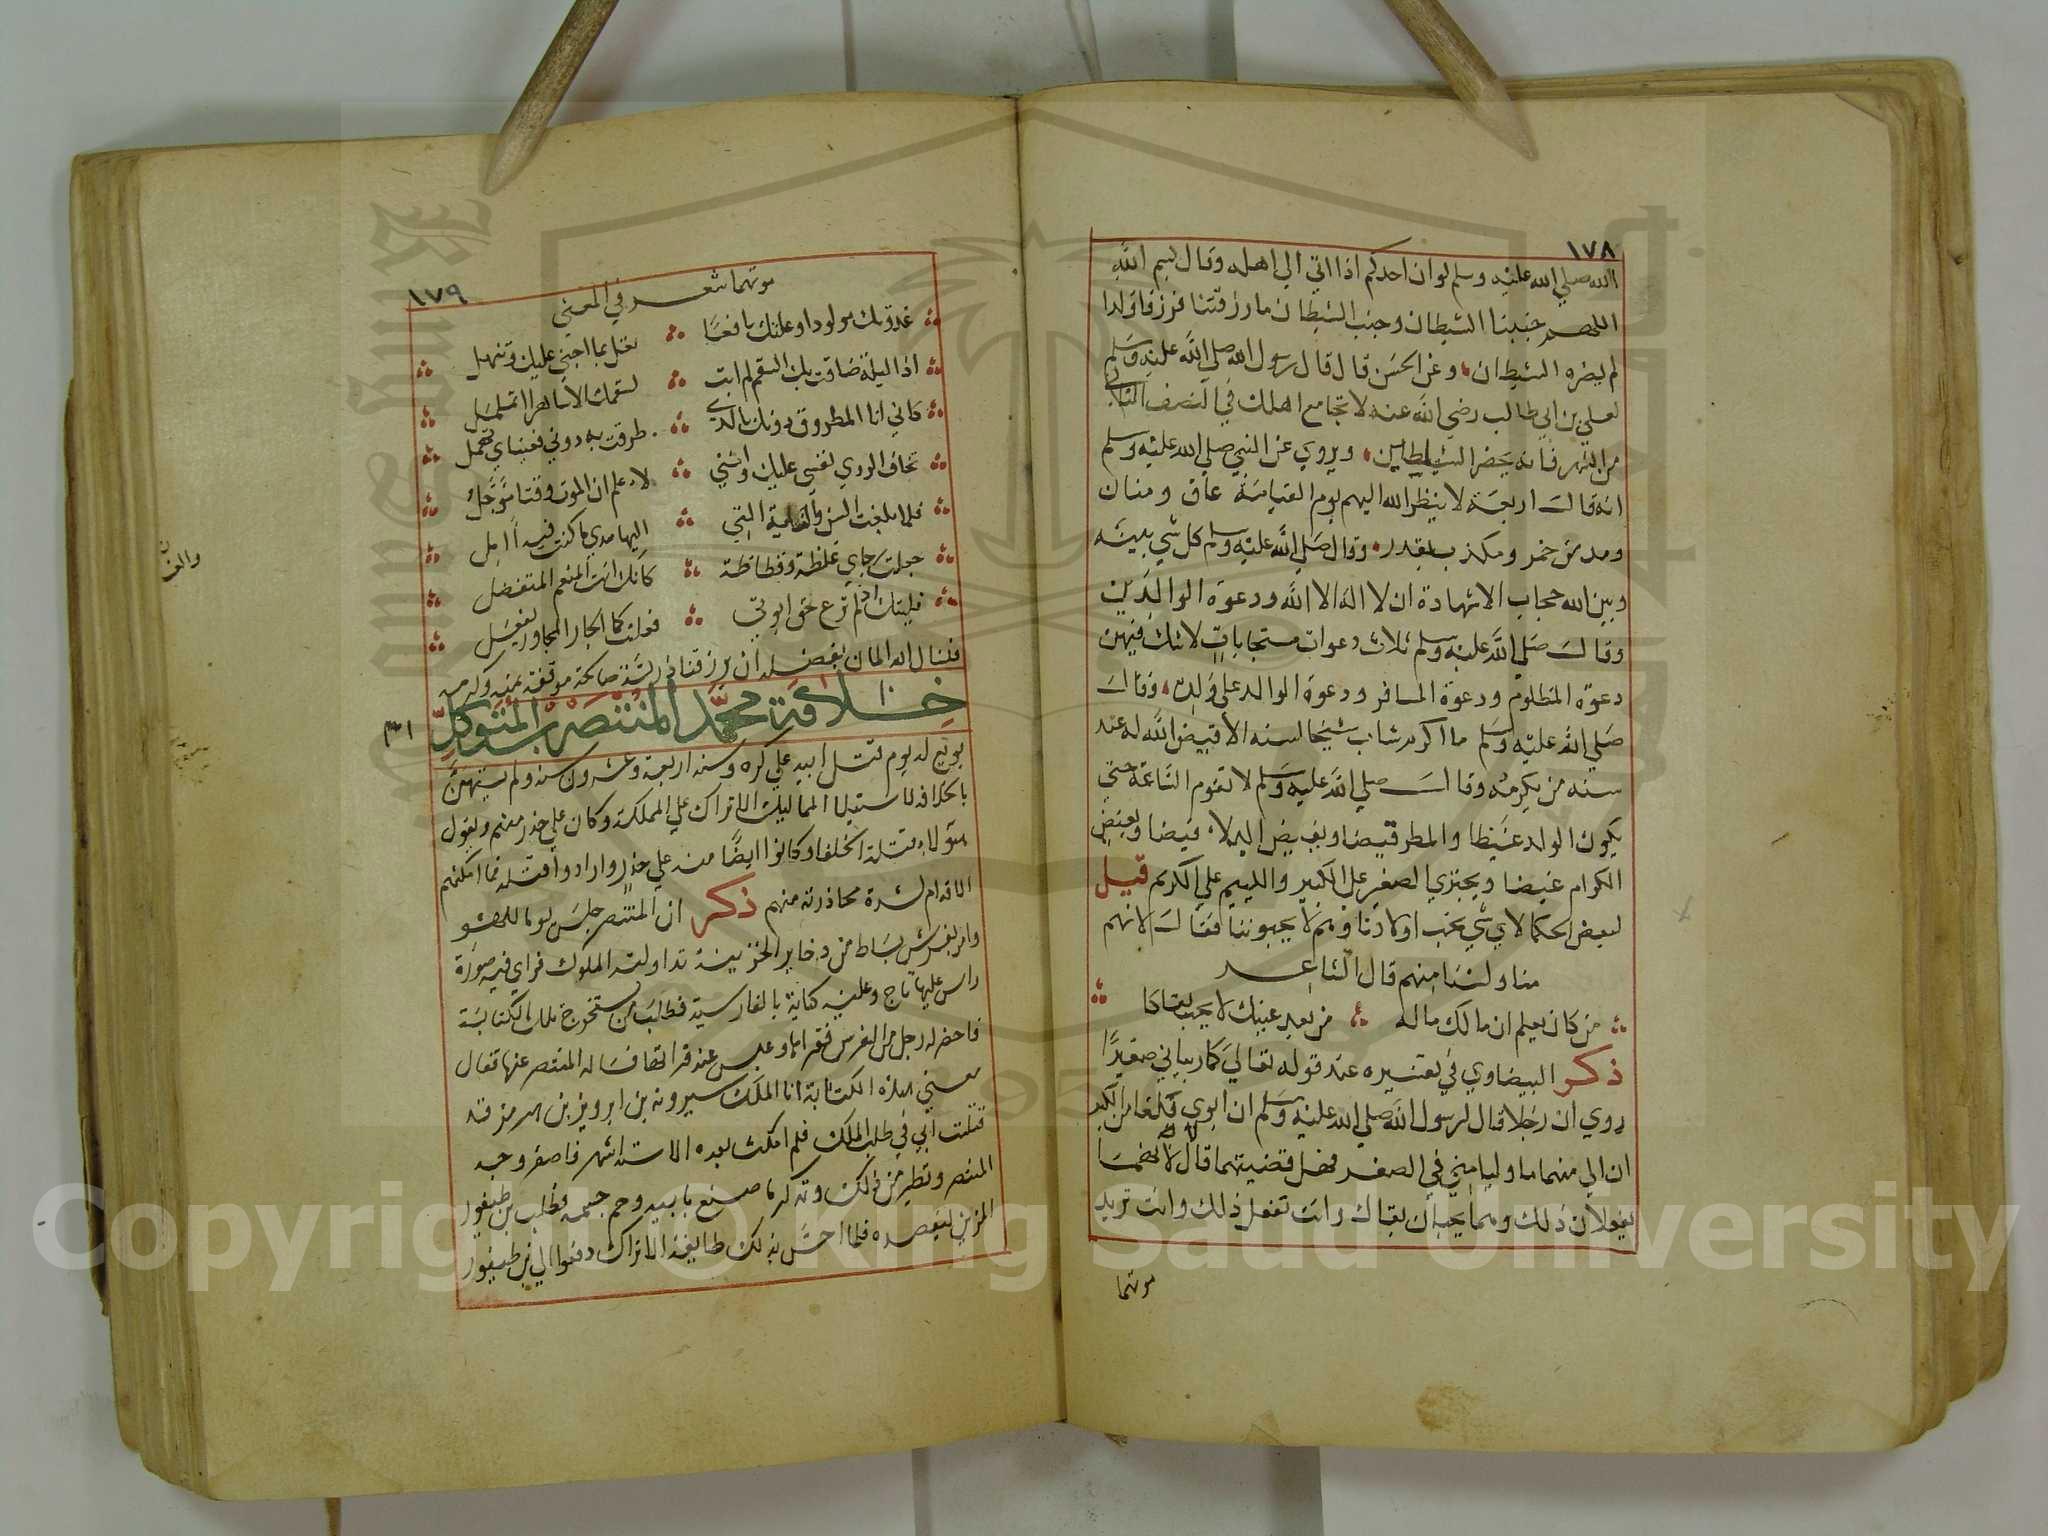 ١٧٨
الله صلي الله عليه وسلم لوان احدكم اذا اتي الي اهله وقال بسم الله
اللهم جنبنا الشيطان وجنب الشيطان ما رزقتنا فرزقا ولدا
لم يضره الشيطان وعن الحسن قال قال رسول الله صلي الله عليه وسلم
لعلي بن ابي طالب رضي الله عنه لا تجامع اهلك في النصف الثاني
من الشهر فانه يحضر الشياطين ويروي عن النبي صلي الله عليه وسلم
انه قال اربعة لا ينظر الله اليهم يوم القيامة عاق ومنان
ومدمن خمر ومكذب بقدر وقال صلي الله عليه وسلم كل شي بينه
وبين الله حجاب الا شهادة ان لا اله الا الله ودعوة الوالدين
وقال صلي الله عليه وسلم ثلاث دعوات مستجابات لا شك فيهن
دعوة المظلوم ودعوة المسافر ودعوة الوالد علي ولده وقال
صلي الله عليه وسلم ما اكرم شاب شيخا لسنه الا قيض الله له عند
سنه من يكرمه وقال صلي الله عليه وسلم لا تقوم الساعة حتي
يكون الولد غيظا والمطر قيضا ويفيض اللئام فيضا ويغيض
الكرام غيضا ويجتري الصغير علي الكبير واللييم علي الكريم قيل
لبعض الحكما لاي شي نحب اولادنا وهم لا يحبوننا فقال لانهم
منا ولسنا منهم قال الشاعر
من كان يعلم ان مالك ماله من بعد عينك لا يحب بقاكا
ذكر البيضاوي في تفسيره عند قوله تعالي كما ربياني صغيرا
روي ان رجلا قال لرسول الله صلي الله عليه وسلم ان ابوي بلغا من الكبر
ان الي منهما ما وليا مني في الصغر فهل قضيتهما قال لا فانهما
يفعلان ذلك وهما يحبان بقاك وانت تفعل ذلك وانت تريد
موتهما
١٧٩
موتهما شعر في المعني
غدوتك مولودا وعلتك يافعا تعل بما اجني عليك وتنهل
اذا ليلة ضاقت بك السقم لم ابت لسقمك الا ساهرا اتململ
كاني انا المطروق دونك بالذي طرقت به دوني فعيناي تهمل
تخاف الردي نفسي عليك وانني لاعلم ان الموت وقتا موجل
فلما بلغت السن والغاية التي اليها مدي ما كنت فيه اامل
جعلت جزاي غلظة وفظاظة كانك انت المنعم المتفضل
فليتك اذ لم ترع حق ابوتي فعلت كما الجار المجاور يفعل
فنسال الله المان بفضله ان يرزقنا ذرية صالحة موفقة بمنه وكرمه
خلافة محمد المنتصر بن المتوكل
بويع له يوم قتل ابيه علي كره وسنه اربعة وعشرون سنه ولم يتهن
بالخلافه لاستيلا المماليك الاتراك علي المملكة وكان علي حذر منهم ويقول
هولاء قتلة الخلفا وكانوا ايضا منه علي حذر وارادوا قتله فما امكنهم
الاقدام لشدة محاذرته منهم ذكر ان المنتصر جلس يوما للهو
وامر بفرش بساط من ذخاير الخزينة تداولته الملوك فراي فيه صورة
راس عليها تاج وعليه كتابة بالفارسية فطلب من يستخرج تلك الكتابة
فاحضر له رجل من الفرس فقراها وعبس عند قراتها فساله المنتصر عنها فقال
معني هذه الكتابة انا الملك سيرويه بن ابرويز بن هرمز قد
قتلت ابي في طلب الملك فلم امكث بعده الا ستة اشهر فاصفر وجه
المنتصر وتطير من ذلك وتذكر ما صنع بابيه وحم جسمه فطلب بن طيفور
المزين ليفصده فلما احس بذلك طايفة الاتراك دفعوا الي بن طيفور